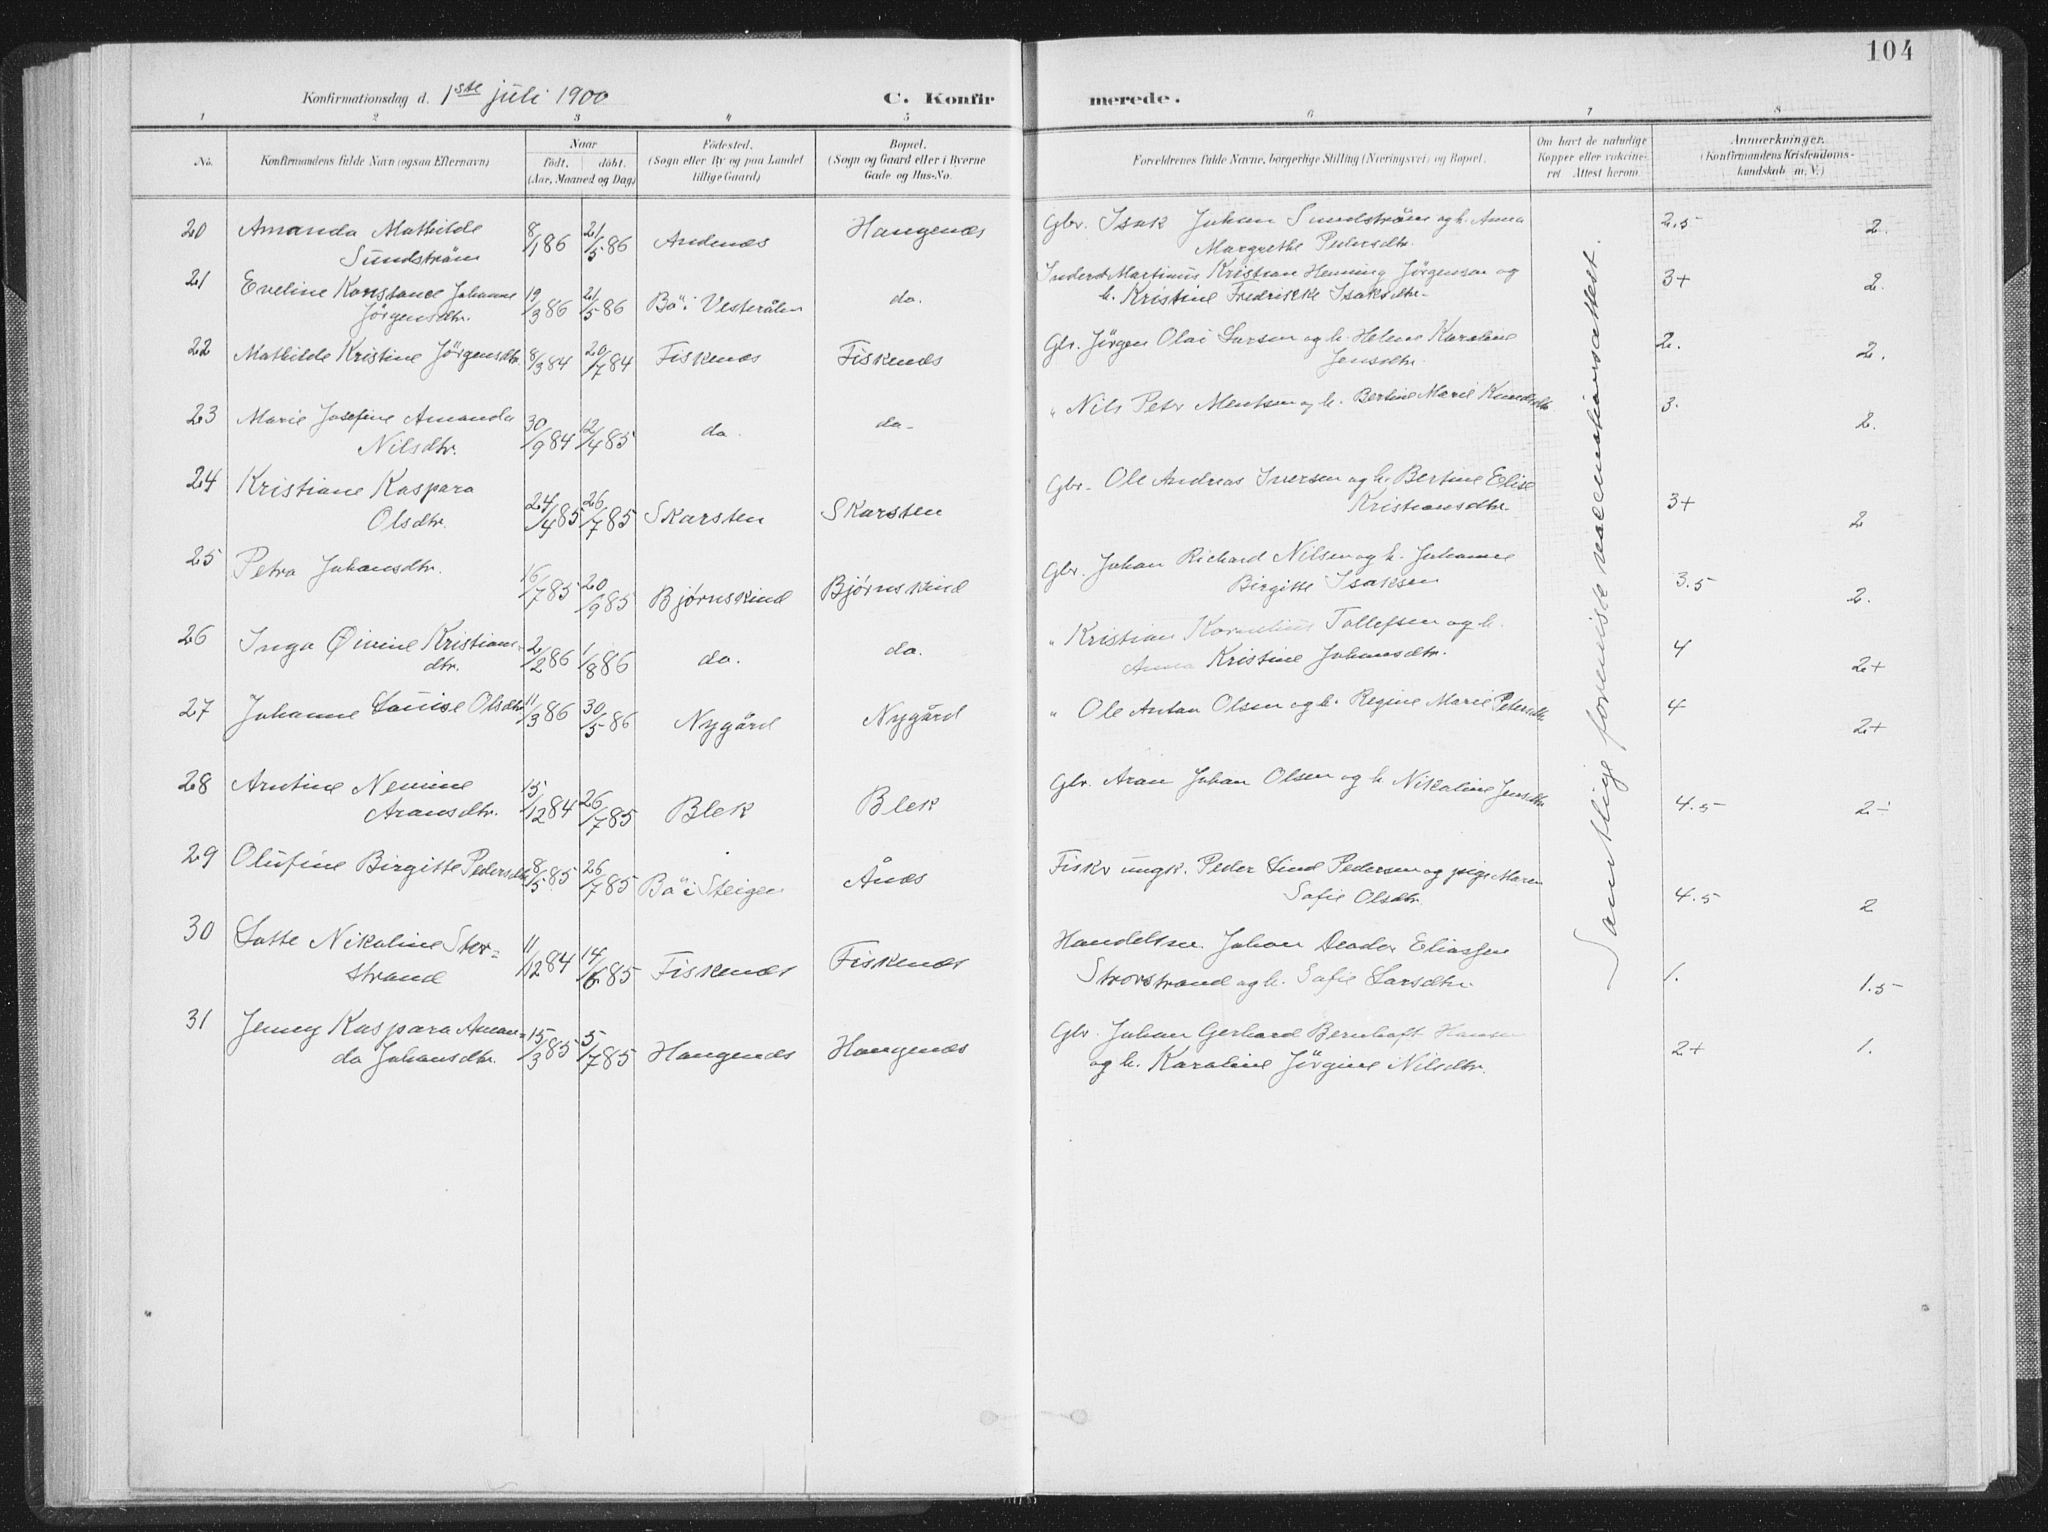 104
Konfirmationsdag d. 1ste juli 1900 C. Konfirmerede.
1 2 3 4 5 6 7 8
No. Konfirmandens fulde Navn (ogsaa Efternavn) Naar født. døbt. (Aar, Maaned og Dag) Fødested. (Sogn eller By og paa Landet tillige Gaard) Bopæl. (Sogn og Gaard eller i Byerne Gade og Hus-No. Forældrenes fulde Navne, borgerlige Stilling (Næringsvei) og Bopæl. Om havt de naturlige Kopper eller vakcineret. Attest herom. Anmærkninger. (Konfirmandens Kristendomskundskab m. V.)
20 Amanda Mathilde 8/1 86 21/5 86 Andenæs Haugenæs Gbr. Isak Johan Sundström og h. Anna 2.5 2.
Sundström Margrethe Pedersdtr.
21 Eveline Konstance Johanne 19/3 86 21/5 86 Bö i Vesterålen do. Inderst Martinus Kristian Henning Jørgensen og 3+ 2.
Jørgensdtr. h. Kristine Fredrikke Isaksdtr.
22 Mathilde Kristine Jörgensdtr. 8/3 84 20/7 84 Fiskenæs Fiskenæs Gbr. Jørgen Olai Larsen og h. Helene Karoline 2. 2.
Jensdtr.
23 Marie Josefine Amanda 30/9 84 12/4 85 do. do. " Nils Peter Mentsen og h. Bertine Marie Knudsdtr. 3. 2.
Nilsdtr.
24 Kristiane Kaspara 24/4 85 26/7 85 Skarsten Skarsten Gbr. Ole Andreas Iversen og h. Bertine Elise 3+ 2
Olsdtr. Kristiansdtr.
25 Petra Johansdtr. 16/7 85 20/9 85 Bjørnskind Bjørnskind Gbr. Johan Richard Nilsen og h. Johanne 3.5 2.
Birgitte Isaksen
26 Inga Øivine Kristians- 2/2 86 1/8 86 do. do. " Kristian Kornelius Tollefsen og h. 4 2+
dtr. Anna Kristine Johansdtr.
27 Johanne Louise Olsdtr. 11/3 86 30/5 86 Nygård Nygård " Ole Antan Olsen og h. Regine Marie Petersdtr. 4 2+
28 Arntine Nemine 15/12 84 26/7 85 Blek Blek Gbr. Aron Johan Olsen og h. Nikoline Jensdtr. 4.5 2÷
Aronsdtr.
29 Olufine Birgitte Pedersdtr. 8/5 85 26/7 85 Bö i Steigen Ånæs Fisker ungk. Peder Lind Pedersen og pige Maren 4.5 2
Sofie Olsdtr.
30 Lotte Nikoline Stor- 11/12 84 14/6 85 Fiskenæs Fiskenæs Handelsm. Johan Deodor Eliassen 1. 1.5
strand Storstrand og h. Sofie Larsdtr.
31 Jenny Kaspara Aman- 15/3 85 5/7 85 Haugenæs Haugenæs Gbr. Johan Gerhard Bernhoft Hansen 2+ 1.
da Johansdtr. og h. Karoline Jørgine Nilsdtr.
Samtlige foreviste vaccinationsattest.